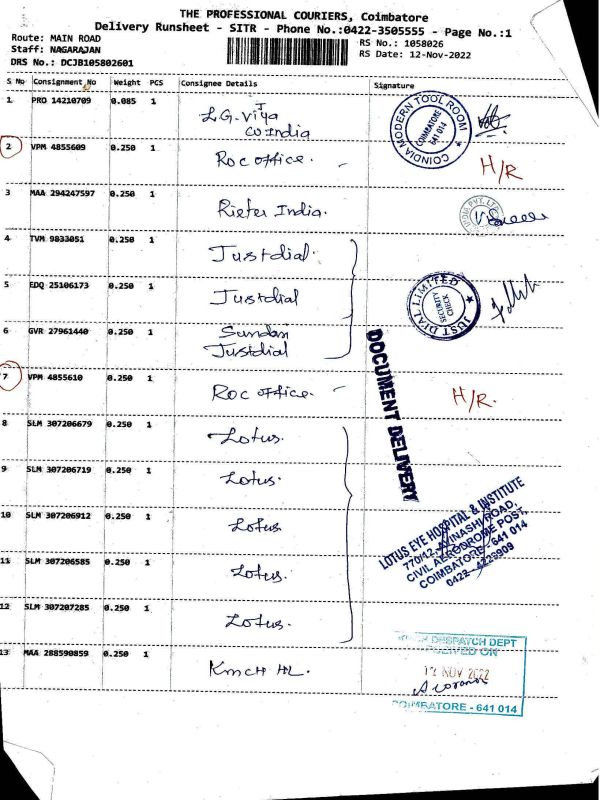 THE PROFESSIONAL COURIERS, Coimbatore
Delivery Runsheet - SITR - Phone No.:0422-3505555 - Page No.:1
Route: MAIN ROAD
Staff: NAGARAJAN
DRS No.: DCJB105802601
RS No.: 1058026
RS Date: 12-Nov-2022
S No Consignment No Weight PCS Consignee Details Signature
1 PRO 14210709 0.085 1 L.G.
Coindia
COINDIA MODERN TOOL ROOM
COIMBATORE
641 014
2 VPM 4855609 0.250 1 Roc office. H/R
3 MAA 294247597 0.250 1 Rieter India.
PVT. LTD
4 TVM 9833051 0.250 1 Justdial.
5 EDQ 25106173 0.250 1 Justdial
JUST DIAL LIMITED
SECURITY
CHECK
6 GVR 27961440 0.250 1 Sundar
Justdial
DOCUMENT DELIVERY
7 VPM 4855610 0.250 1 Roc office. H/R.
8 SLM 307206679 0.250 1 Lotus.
9 SLM 307206719 0.250 1 Lotus.
10 SLM 307206912 0.250 1 Lotus
LOTUS EYE HOSPITAL & INSTITUTE
770/12, AVINASHI ROAD,
CIVIL AERODROME POST,
COIMBATORE - 641 014
0422 - 4229909
11 SLM 307206585 0.250 1 Lotus.
12 SLM 307207285 0.250 1 Lotus.
13 MAA 288590859 0.250 1 KmcH HL.
DESPATCH DEPT
RECEIVED ON
12 NOV 2022
COIMBATORE - 641 014